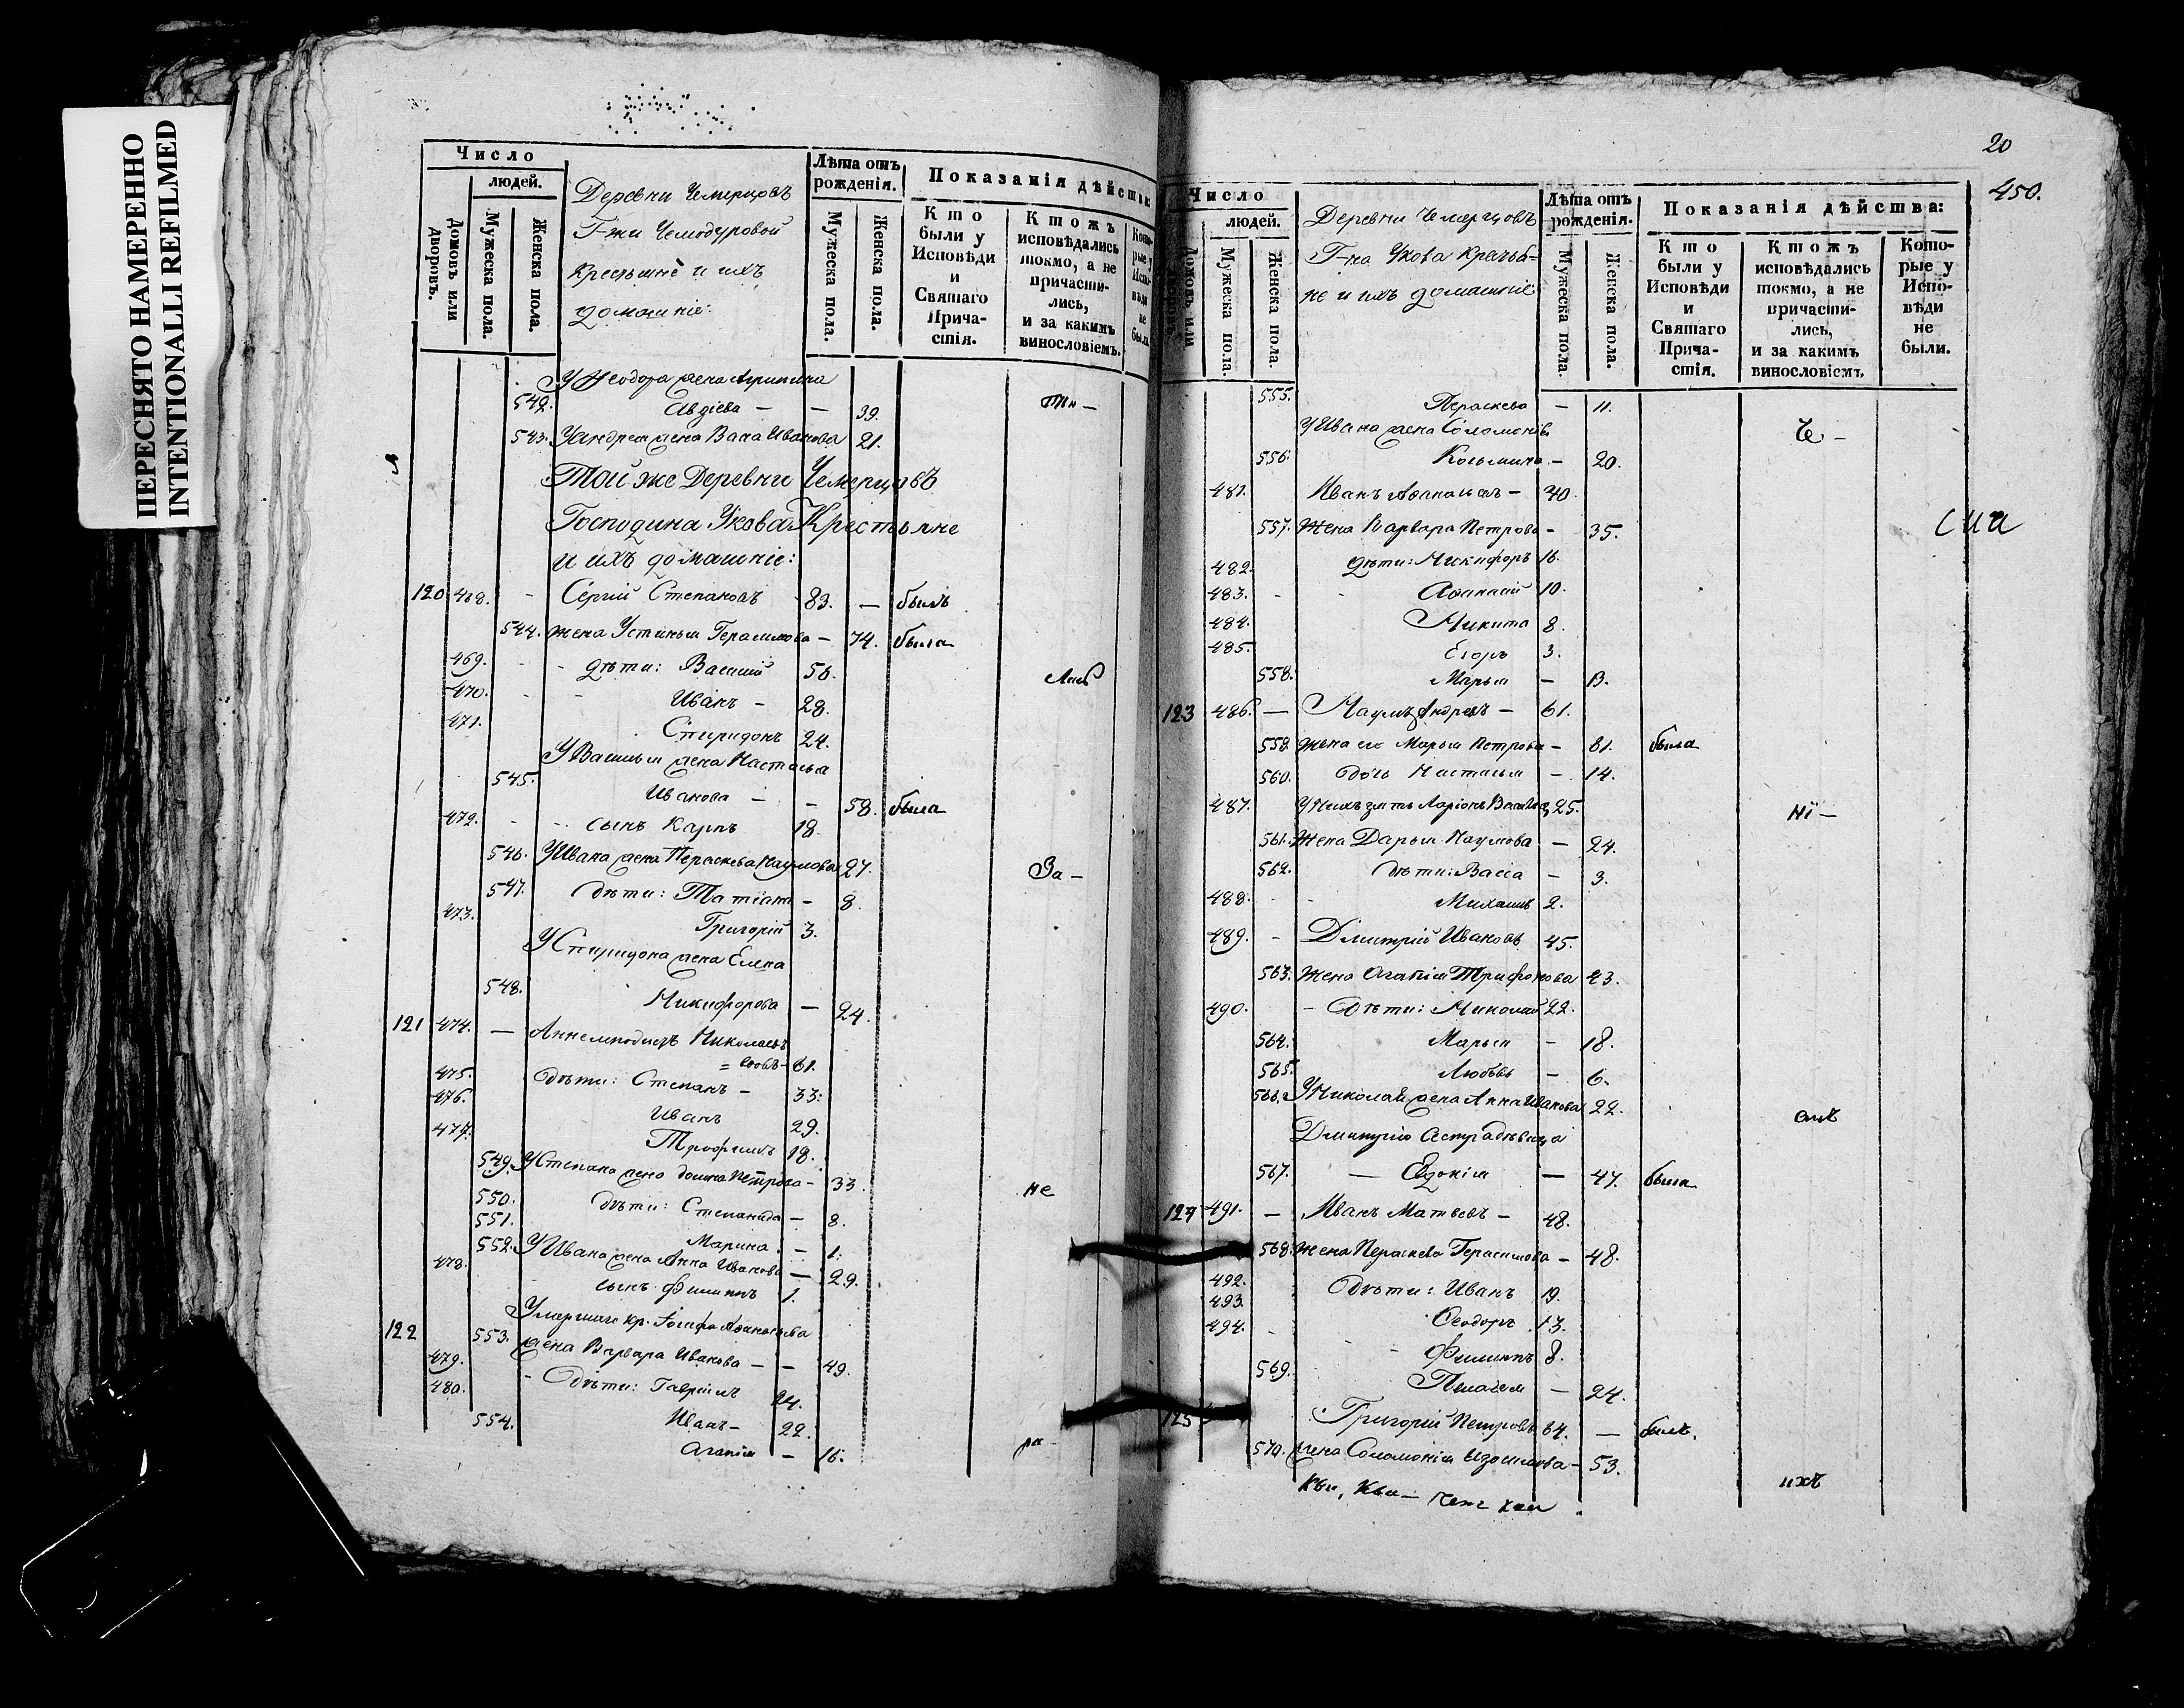 ПЕРЕСНЯТО НАМЕРЕННО
INTENTIONALLI REFILMED
Число
людей.
Домовъ или дворовъ.
Мужеска пола.
Женска пола.
Деревни Чемерцовъ
Г-жи Чемодуровой
Крестьяне и ихъ
домашніе:
Лѣта отъ рожденія.
Мужеска пола.
Женска пола.
Показанія дѣйства:
Кто были у Исповѣди и Святаго Причастія.
Ктожъ исповѣдались токмо, а не причастились, и за какимъ винословіемъ.
Которые у Исповѣди не были.
У Ѳеодора жена Агрипина
542. Авдіева — — 39.
543. У Андрея жена Васа Иванова 21.
Той же Деревни Чемерцовъ
Господина Укова Крестьяне
и ихъ домашніе:
120 468. - Сергій Степановъ 83. — былъ
544. жена Устинья Герасимова — 74. была
469. - - дѣти: Василій 56.
470. - - Иванъ - 28.
471. Спиридонъ 24.
У Василья жена Настасья
545. Иванова — - 58. была
472. - - сынъ Карпъ 18.
546. У Ивана жена Пераскева Наумова 27. За —
547. дѣти: Татіана — 8.
473. Григорій 3.
У Спиридона жена Елена
548. Никифорова — 24.
121 474. —
Николаевъ
61.
475. Дѣти: Степанъ — 33.
476. Иванъ 29.
477. Трофимъ 18.
549. У Степана жена Петрова — 33. не
550. дѣти: Степанида — 8.
551. Марина — 1.
552. У Ивана жена Анна Иванова — 29.
478. сынъ Филиппъ 1.
Умершаго кр. Іосифа Аѳанасьева
122 553. жена Варвара Иванова — — 49.
479. - Дѣти: Гавріилъ 24.
480. Иванъ — 22.
554. Агапія — 16.
20
450.
Число
людей.
Домовъ или дворовъ.
Мужеска пола.
Женска пола.
Деревни Чемерцовъ
Г-на Укова Крестья-
не и ихъ домашніе
Лѣта отъ рожденія.
Мужеска пола.
Женска пола.
Показанія дѣйства:
Кто были у Исповѣди и Святаго Причастія.
Ктожъ исповѣдались токмо, а не причастились, и за какимъ винословіемъ
Которые у Исповѣди не были.
555. Пераскева — 11.
У Ивана жена Соломонія Че —
556. Козьмина — 20.
481. Иванъ Аѳанасьевъ — 40.
557. Жена Варвара Петрова — 35.
482. дѣти: Никифоръ 16.
483. - - Аѳанасій 10.
484. Никита 8.
485. Егоръ 3.
558. Марья — 13.
123 486. — Наумъ Андреевъ — 61.
558 жена его Марья Петрова — 81. была
560. дочь Настасья — 14.
487. У нихъ зять Ларіонъ 25. ні —
561. Жена Дарья Наумова — 24.
562. дѣти: Васса — 3.
488. - - Михаилъ 2.
489. - Димитрій Ивановъ 45.
563. Жена Агапія Трифонова 43.
490. - Дѣти: Николай 22.
564. Марья — 18.
565. Любовь — 6.
566. У Николая жена Анна Иванова 22.
Дмитрію
567. — Евдокія — 47. была
124 491. — Иванъ Матвеевъ — 48.
568. жена Пераскева Герасимова — 48.
492. Дѣти: Иванъ 19.
493. Ѳеодоръ 13.
494. - - Филиппъ 8.
569. Пелагея — 24.
125 Григорій Петровъ 64. — былъ.
570. жена Соломонія Изосимова — 53.
ихъ